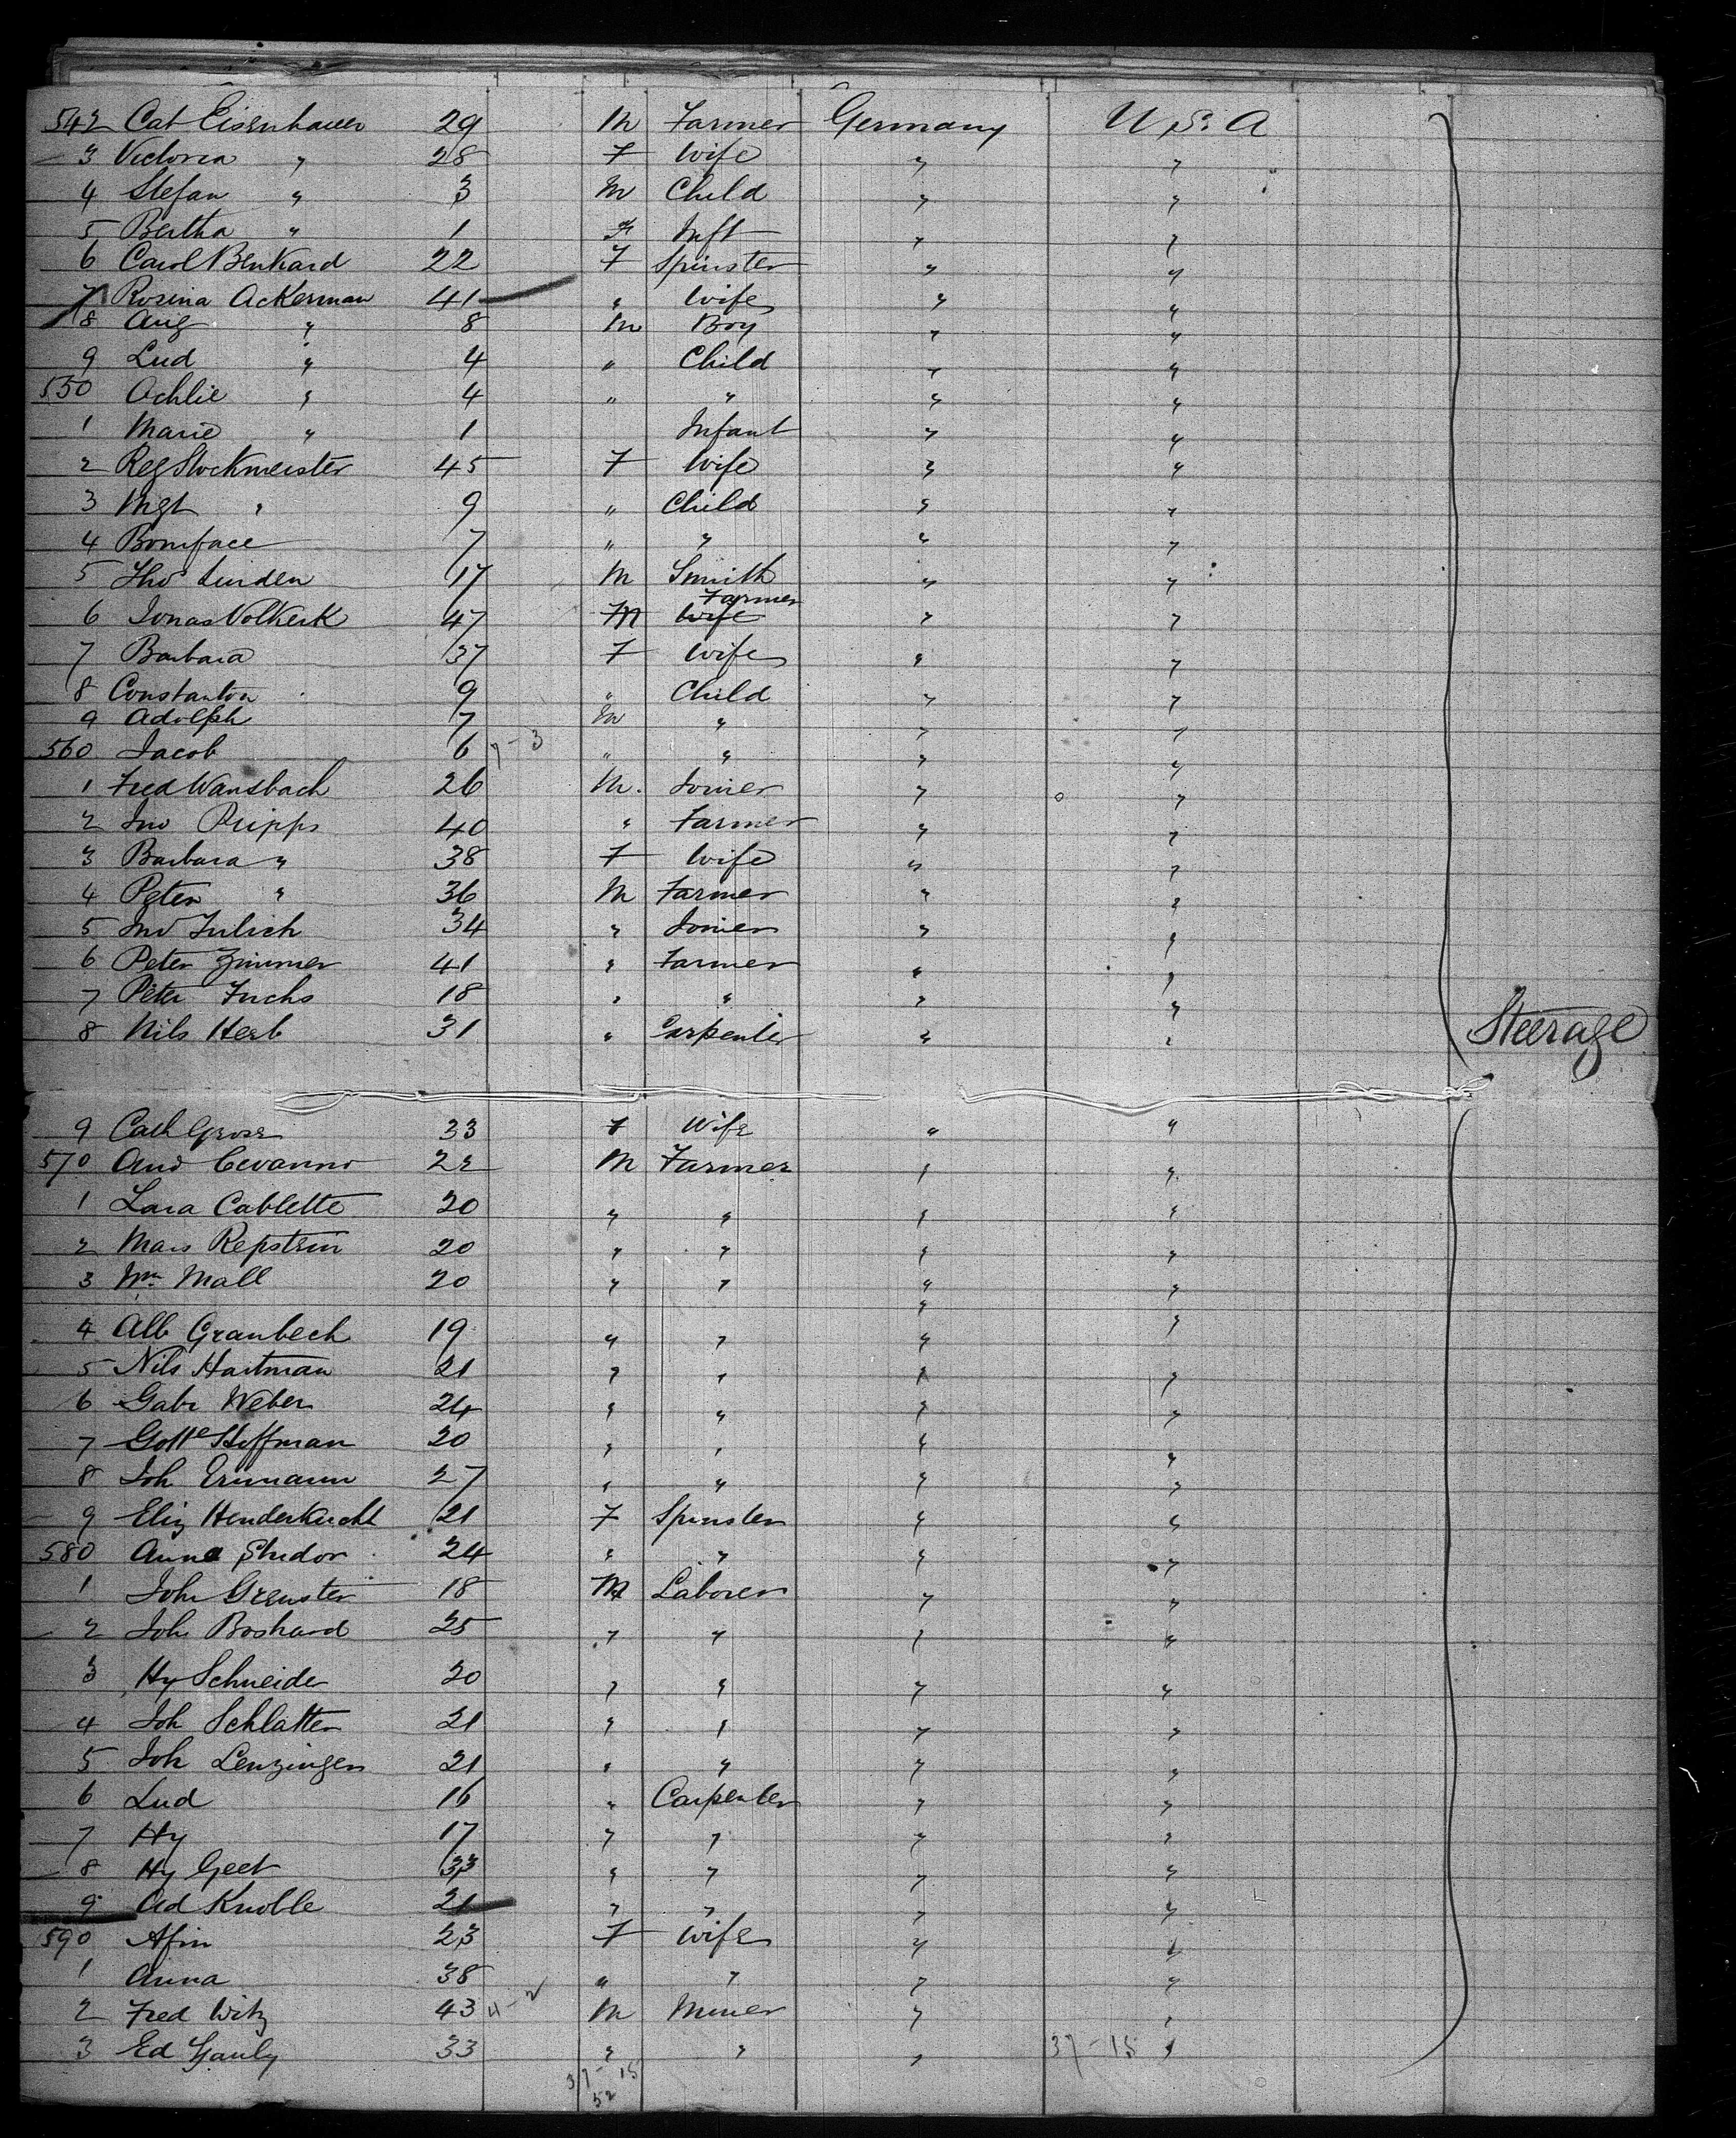 542 Cat Eisenhauer 29 M Farmer Germany U.S.A
3 Victoria " 28 F Wife " "
4 Stefan " 3 M Child " "
5 Bertha " 1 F Inft " "
6 Carol Benkard 22 F Spinster " "
7 Rosina Ackerman 41 " Wife " "
8 Aug " 8 M Boy " "
9 Lud " 4 " Child " "
550 Achlie " 4 " " " "
1 Marie " 1 Infant " "
2 Reg Stockmeister 45 F Wife " "
3 Mgt " 9 " Child " "
4 Boniface 7 " " " "
5 Thos Linden 17 M Smith " "
Farmer
6 Jonas Volkerk 47 M Wife " "
7 Barbara 37 F Wife " "
8 Constanton 9 " Child " "
9 Adolph 7 M " " "
560 Jacob 6 7-3 " " " "
1 Fred Wansbach 26 M. Joiner " "
2 Jno Pripps 40 " Farmer " "
3 Barbara " 38 F Wife " "
4 Peter " 36 M Farmer " "
5 Jno Julich 34 " Joiner " "
6 Peter Zimmer 41 " Farmer " "
7 Peter Fuchs 18 " " " "
8 Nils Herb 31 " Carpenter " " Steerage
9 Cath Gross 33 F Wife " "
570 And Cevanno 22 M Farmer " "
1 Lara Cablette 20 " " " "
2 Mars Repstein 20 " " " "
3 Wm Mall 20 " " " "
4 Alb Granbech 19 " " " "
5 Nils Hartman 21 " " " "
6 Gabr Weber 24 " " " "
7 Gotte Hoffman 20 " " " "
8 Joh Ermann 27 " " " "
9 Eliz Henderkucht 21 F Spinster " "
580 Anna Studor 24 " " " "
1 Joh Grenster 18 M Laborer " "
2 Joh Boshard 25 " " " "
3 Hy Schneider 20 " " " "
4 Joh Schlatter 21 " " " "
5 Joh Lenzinger 21 " " " "
6 Lud 16 " Carpenter " "
7 Hy 17 " " " "
8 Hy Geet 33 " " " "
9 Ad Knoble 21 " " " "
590 Afin 23 F Wife " "
1 Anna 38 " " " "
2 Fred Witz 43 4-2 M Miner " "
3 Ed Gauly 33 " " " 37-15 "
37-15
52